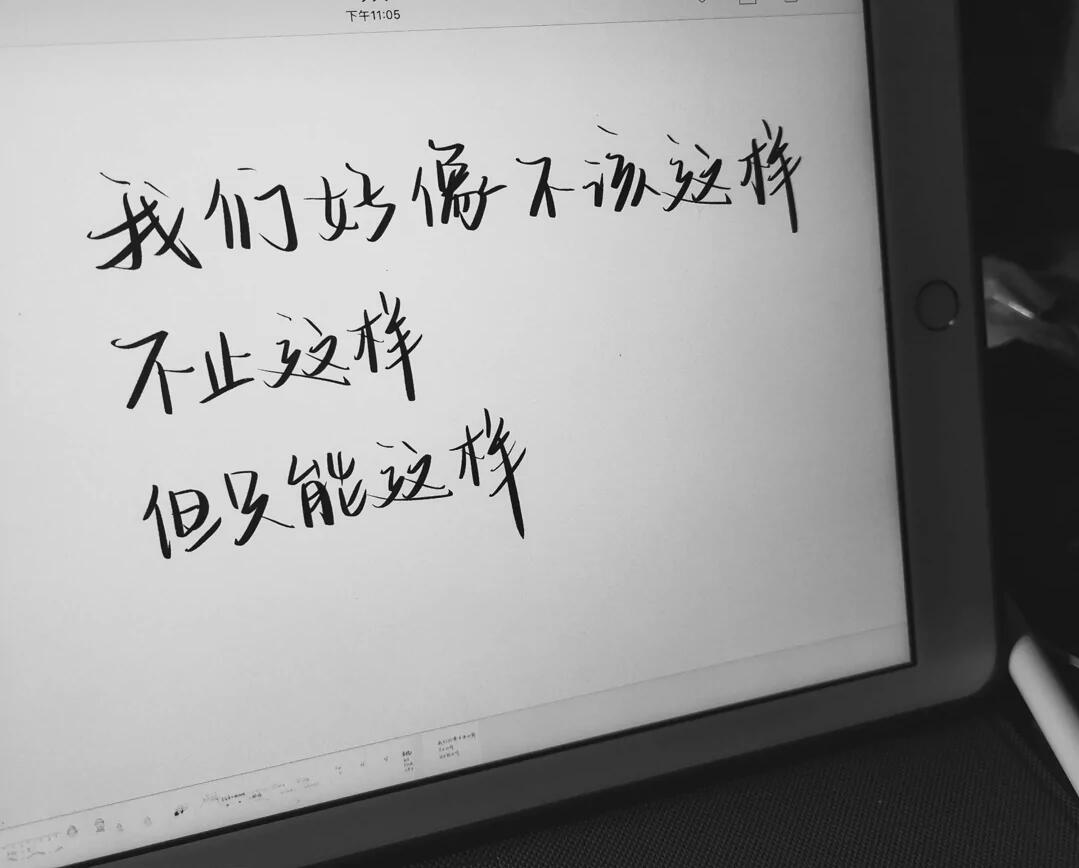 下午11:05
我们好像不该这样
不止这样
但只能这样